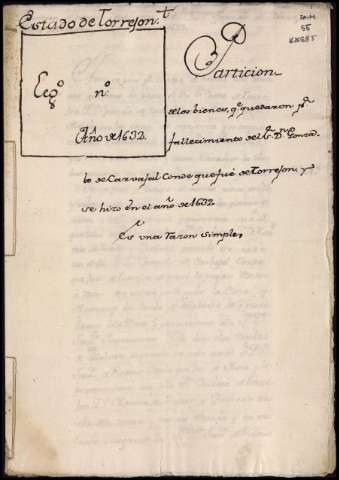 Estado de Torrejon.
Leg.º n.º
Año de 1632.
Particion
de los bienes, q.e quedaron p.r
fallecimiento del S.r D.n Gonza-
lo de Carvajal Conde que fué de Torrejon, y
se hizo en el año de 1632
Es una razon simple,